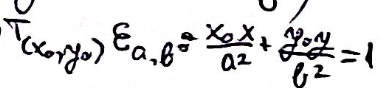 T(x₀,y₀) Ɛa,b: x₀x/a² + y₀y/b² = 1